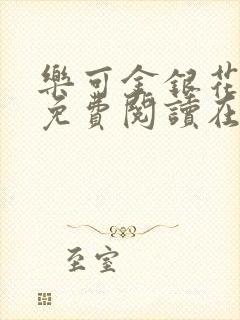 樂可金銀花
免費閱讀在
至室